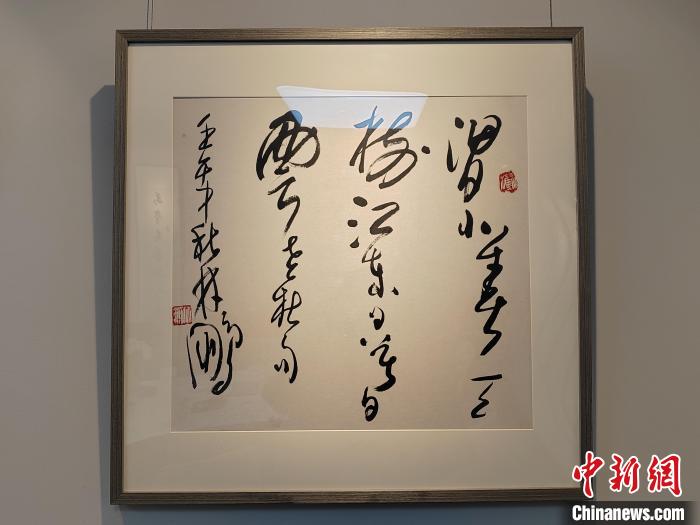 渭北春天
樹江東日暮
雲老杜句
壬午中秋林鵬
中新网
Chinanews.com